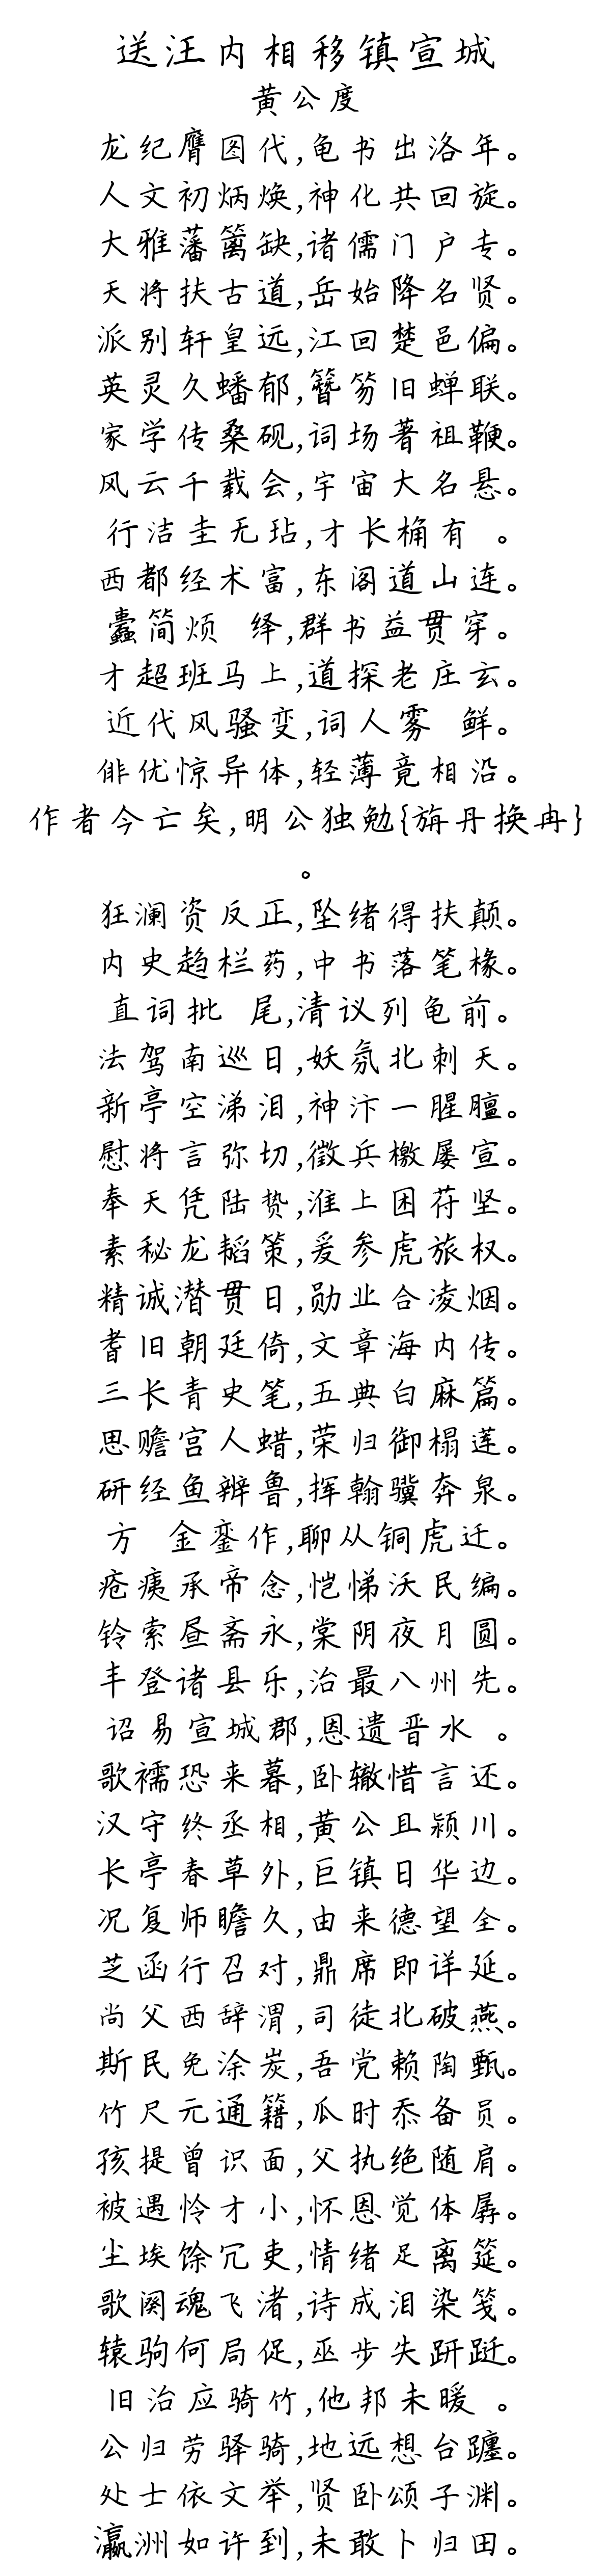 送汪内相移镇宣城
黄公度
龙纪膺图代,龟书出洛年。
人文初炳焕,神化共回旋。
大雅藩篱缺,诸儒门户专。
天将扶古道,岳始降名贤。
派别轩皇远,江回楚邑偏。
英灵久蟠郁,簪笏旧蝉联。
家学传桑砚,词场著祖鞭。
风云千载会,宇宙大名悬。
行洁圭无玷,才长桷有 。
西都经术富,东阁道山连。
蠹简烦 绎,群书益贯穿。
才超班马上,道探老庄玄。
近代风骚变,词人雾 鲜。
俳优惊异体,轻薄竟相沿。
作者今亡矣,明公独勉{旃丹换冉}
。
狂澜资反正,坠绪得扶颠。
内史趋栏药,中书落笔椽。
直词批 尾,清议列龟前。
法驾南巡日,妖氛北刺天。
新亭空涕泪,神汴一腥膻。
慰将言弥切,徵兵檄屡宣。
奉天凭陆贽,淮上困苻坚。
素秘龙韬策,爰参虎旅权。
精诚潜贯日,勋业合凌烟。
耆旧朝廷倚,文章海内传。
三长青史笔,五典白麻篇。
思赡宫人蜡,荣归御榻莲。
研经鱼辨鲁,挥翰骥奔泉。
方 金銮作,聊从铜虎迁。
疮痍承帝念,恺悌沃民编。
铃索昼斋永,棠阴夜月圆。
丰登诸县乐,治最八州先。
诏易宣城郡,恩遗晋水 。
歌襦恐来暮,卧辙惜言还。
汉守终丞相,黄公且颍川。
长亭春草外,巨镇日华边。
况复师瞻久,由来德望全。
芝函行召对,鼎席即详延。
尚父西辞渭,司徒北破燕。
斯民免涂炭,吾党赖陶甄。
竹尺元通籍,瓜时忝备员。
孩提曾识面,父执绝随肩。
被遇怜才小,怀恩觉体孱。
尘埃馀冗吏,情绪足离筵。
歌阕魂飞渚,诗成泪染笺。
辕驹何局促,巫步失趼跹。
旧治应骑竹,他邦未暖 。
公归劳驿骑,地远想台躔。
处士依文举,贤卧颂子渊。
瀛洲如许到,未敢卜归田。